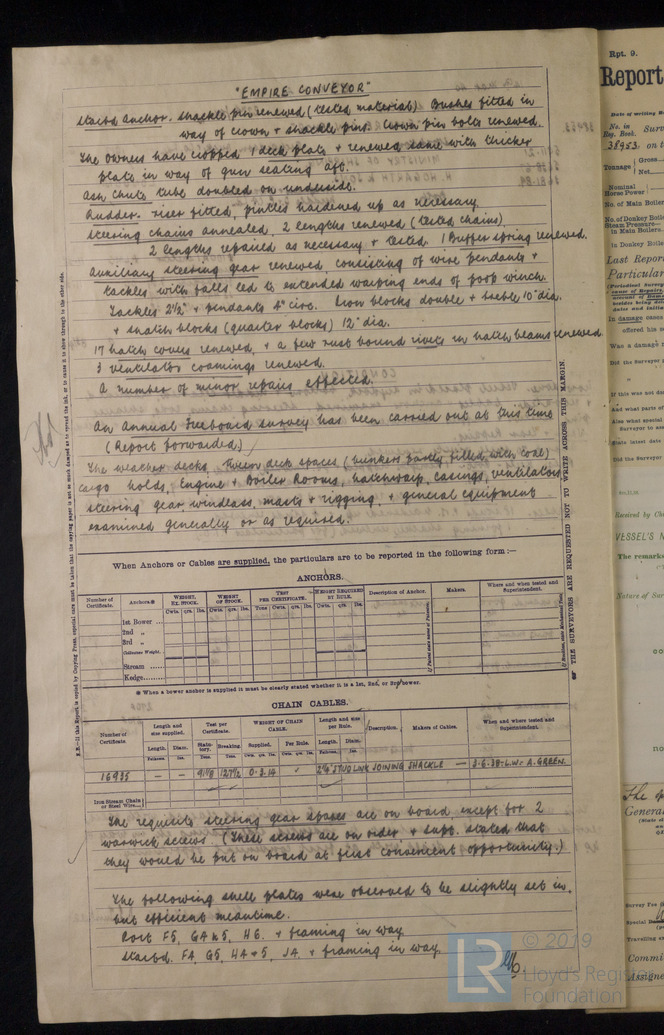 "EMPIRE CONVEYOR"
Starbd Anchor. Shackle pin renewed (tested material) Bushes fitted in
way of crown + shackle pins. Crown pin bolts renewed.
The owners have cropped 1 deck plate + renewed same with thicker
plate in way of gun seating aft.
Ash chute tube doubled on underside.
Rudder. riser fitted, pintles hardened up as necessary.
Steering chains annealed, 2 lengths renewed (tested chains)
2 lengths repaired as necessary + tested. 1 Buffer spring renewed.
Auxiliary steering gear renewed, consisting of wire pendants +
tackles with falls led to extended warping ends of poop winch.
Tackles 2½" + pendants 4" circ. Iron blocks double + treble 10" dia.
+ snatch blocks (quarter blocks) 12" dia.
17 hatch covers renewed, + a few rust bound rivets in hatch beams renewed
3 ventilator coamings renewed.
A number of minor repairs effected.
An Annual Freeboard survey has been carried out at this time
(Report forwarded)
The weather decks, Tween deck spaces (bunkers partly filled with coal)
cargo holds, Engine + Boiler Rooms, hatchways, casings, ventilators
steering gear windlass, masts + rigging, + general equipment
examined generally or as required.
When Anchors or Cables are supplied, the particulars are to be reported in the following form :—
ANCHORS.
Number of Certificate. Anchors.※ WEIGHT, EX. STOCK. WEIGHT OF STOCK. TEST PER CERTIFICATE. WEIGHT REQUIRED BY RULE. Description of Anchor. Makers. Where and when tested and Superintendent.
Cwts. qrs. lbs. Cwts. qrs. lbs. Tons Cwts. qrs. lbs. Cwts. qrs. lbs.
1st Bower
2nd „
3rd „
Collective Weight.
Stream
Kedge
※ When a bower anchor is supplied it must be clearly stated whether it is a 1st, 2nd, or 3rd bower.
CHAIN CABLES.
Number of Certificate. Length and size supplied. Test per Certificate. WEIGHT OF CHAIN CABLE. Length and size per Rule. Description. Makers of Cables. When and where tested and Superintendent.
Length. Diam. Statutory. Breaking. Supplied. Per Rule. Length. Diam.
16935 — — 91⅛ 127½ 0.3.14 2⅛" STUD LINK JOINING SHACKLE — 3-6-38-L.W. A. GREEN.
Iron Stream Chain or Steel Wire
The requisite steering gear spares are on board except for 2
warwick screws (These screws are on order + Supt. stated that
they would be put on board at first convenient opportunity.)
The following shell plates were observed to be slightly set in,
but efficient meantime.
Port F5, G4 & 5, H6. + framing in way.
Starbd. F4, G5, H4 & 5, J4 + framing in way.
THE SURVEYORS ARE REQUESTED NOT TO WRITE ACROSS THIS MARGIN.
LR © 2019
Lloyd's Register
Foundation
Rpt. 9.
Report
No. in
Reg. Book.
38953. on t
Tonnage
Gross
Net
Nominal
Horse Power
No. of Main Boiler
No. of Donkey Boile
Steam Pressure—
in Main Boilers
in Donkey Boile
Last Repor
Particular
In damage cases
offered his se
Was a damage
Did the Surveyor
If this was not di
And what parts of
Also what special
Surveyor to as
State latest date
Did the Surveyor
VESSEL'S N
The remarks
Nature of Sur
General
Survey Fee
Special
Travelling
Commi
Assigne